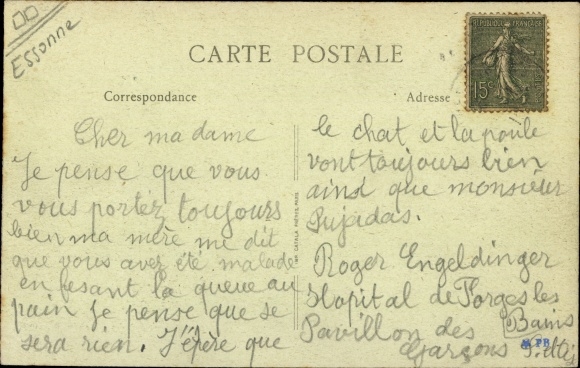 Essonne
CARTE POSTALE
Correspondance
Adresse
REPUBLIQUE FRANÇAISE
15c
Cher madame
Je pense que vous
vous portez toujours
bien ma mère me dit
que vous avez été malade
en fesant la queue au
pain Je pense que se
sera rien. J'épère que
le chat et la poule
vont toujours bien
ainsi que monsieur
Pujadas.
Roger Engeldinger
Hopital de Forges les
Bains
Pavillon des
Garçons
IMP. CATALA FRÈRES, PARIS